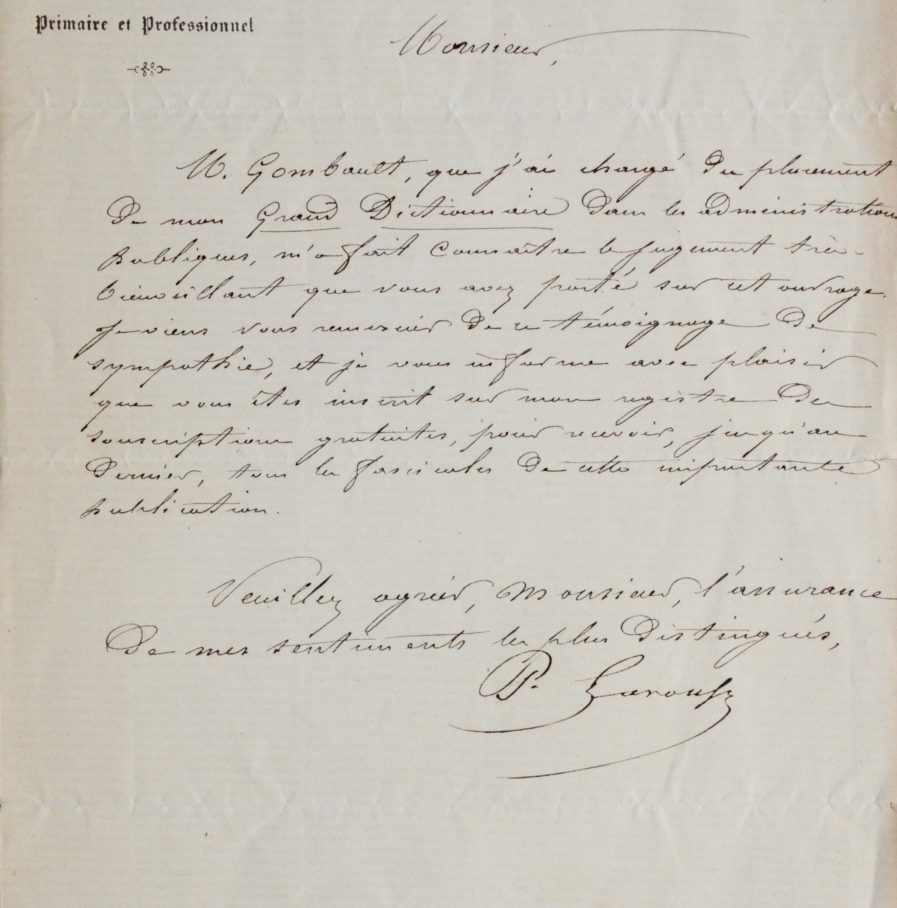 Primaire et Professionnel
Monsieur,
M. Gombault, que j'ai chargé du placement
de mon Grand Dictionnaire dans les administrations
publiques, m'a fait connaître le jugement très-
bienveillant que vous avez porté sur cet ouvrage.
Je viens vous remercier de ce témoignage de
sympathie, et je vous informe avec plaisir
que vous êtes inscrit sur mon registre de
souscriptions gratuites, pour recevoir, jusqu'au
dernier, tous les fascicules de cette importante
publication.
Veuillez agréer, Monsieur, l'assurance
de mes sentiments les plus distingués,
P. Larousse